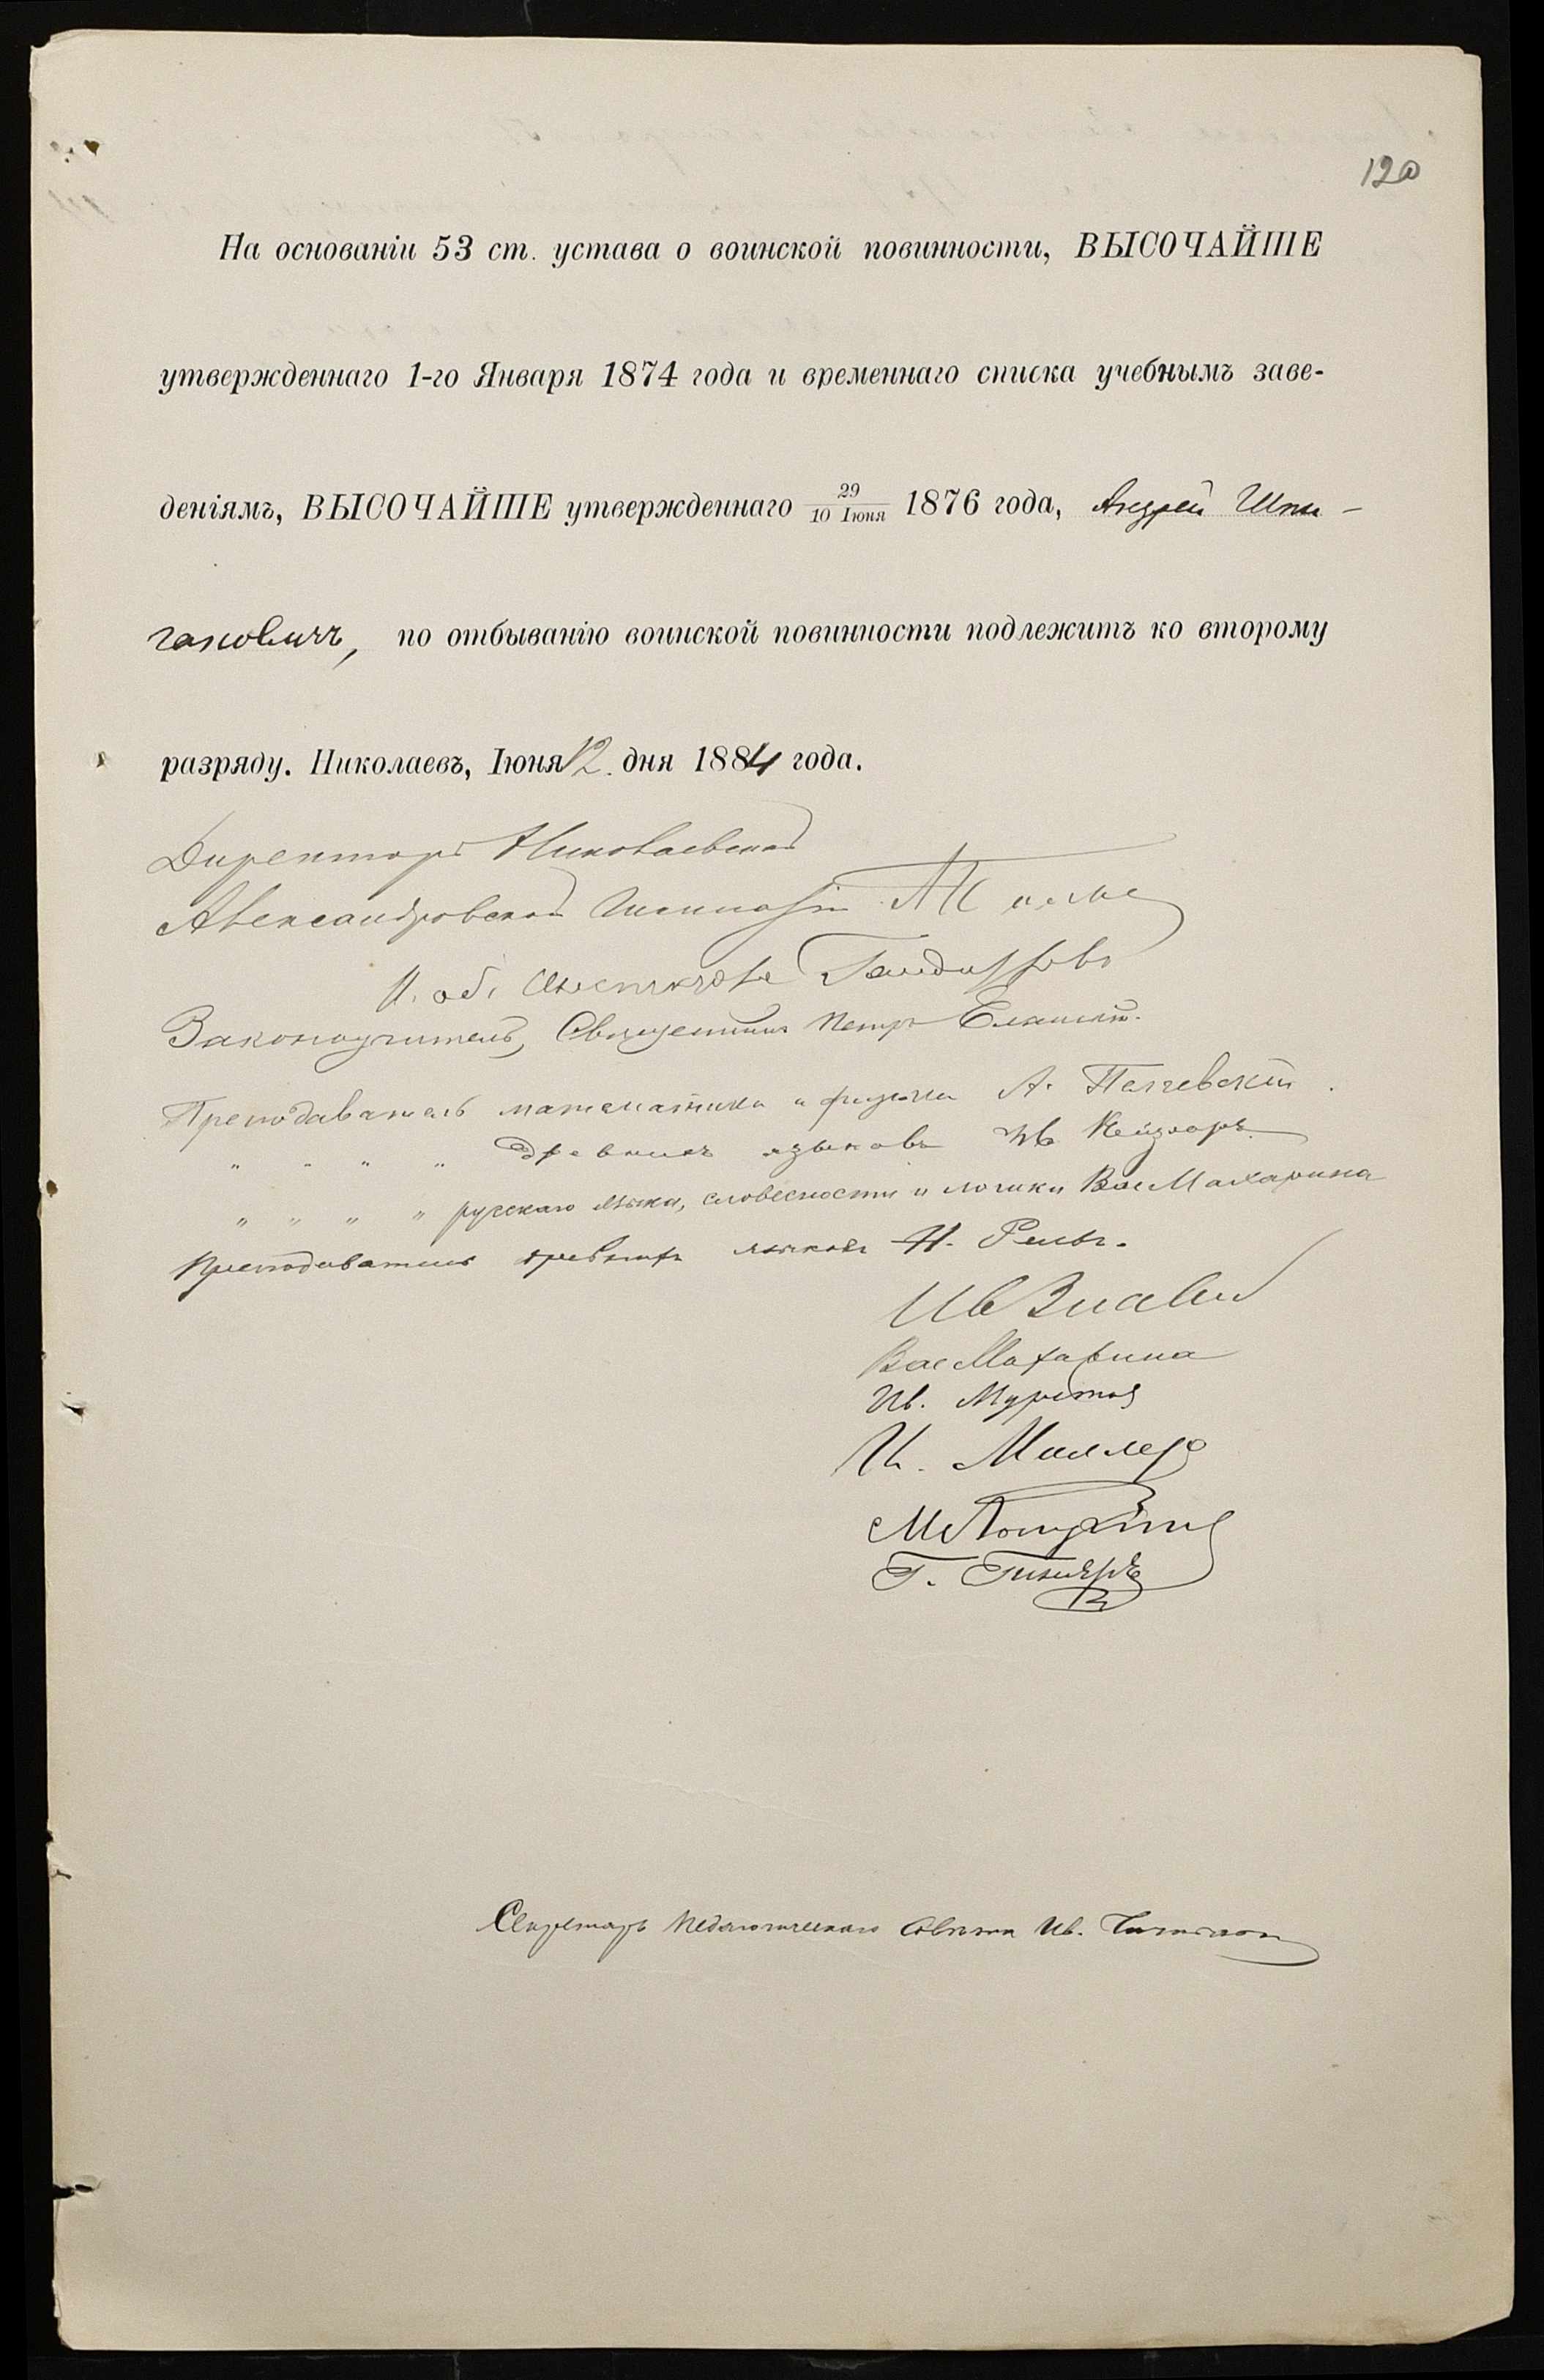 120
На основаніи 53 ст. устава о воинской повинности, ВЫСОЧАЙШЕ
утвержденнаго 1-го Января 1874 года и временнаго списка учебнымъ заве-
деніямъ, ВЫСОЧАЙШЕ утвержденнаго 29/10 Іюня 1876 года, Андрей Шпи-
гановичъ, по отбыванію воинской повинности подлежитъ ко второму
разряду. Николаевъ, Іюня 12 дня 1884 года.
Директоръ Николаевской
Александровской Гимназіи
И. об. Инспектора
Законоучитель, Священникъ Петръ
Преподаватель математики и физики А.
" " " " древнихъ языковъ Ив
" " " " русскаго языка, словесности и логики Вас Махарина
Преподаватель древнихъ языковъ
Ив
Вас Махарина
Ив. Муретовъ
И. Миллеръ
М
Г.
Секретарь Педагогическаго Совета Ив.